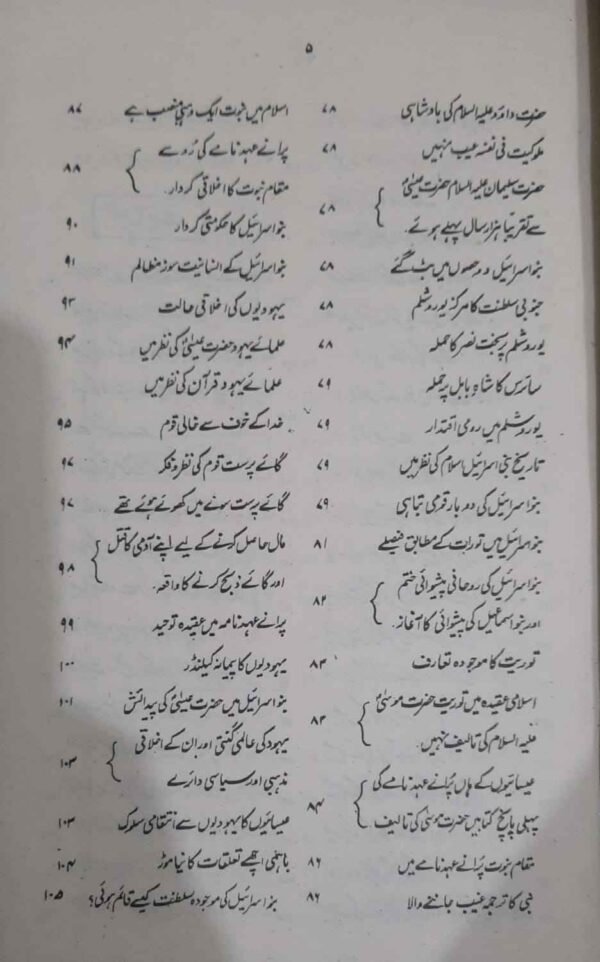 ۵
حضرت داؤد علیہ السلام کی بادشاہی ۷۸
ملوکیت فی نفسہ عیب نہیں ۷۸
حضرت سلیمان علیہ السلام حضرت عیسیٰؑ
سے تقریباً ہزار سال پہلے ہوئے۔ ۷۸
بنو اسرائیل دو حصوں میں بٹ گئے ۷۸
جنوبی سلطنت کا مرکز یوروشلم ۷۸
یوروشلم پر بخت نصر کا حملہ ۷۸
سائرس کا شاہ بابل پر حملہ ۷۹
یوروشلم میں رومی اقتدار ۷۹
تاریخ بنی اسرائیل اسلام کی نظر میں ۷۹
بنو اسرائیل کی دو بار قومی تباہی ۷۹
بنو اسرائیل میں تورات کے مطابق فیصلے ۸۱
بنو اسرائیل کی روحانی پیشوائی ختم
اور بنو اسماعیل کی پیشوائی کا آغاز۔ ۸۲
توریت کا موجودہ تعارف ۸۳
اسلامی عقیدہ میں توریت حضرت موسیٰؑ
علیہ السلام کی تالیف نہیں۔ ۸۳
عیسائیوں کے ہاں پُرانے عہد نامے کی
پہلی پانچ کتابیں حضرت موسیٰ کی تالیف ۸۴
مقام نبوت پُرانے عہد نامے میں ۸۶
نبی کا ترجمہ غیب جاننے والا ۸۶
اسلام میں نبوت ایک وہبی منصب ہے ۸۷
پرانے عہد نامے کی رُو سے
مقام نبوت کا اخلاقی کردار۔ ۸۸
بنو اسرائیل کا حکومتی کردار ۹۰
بنو اسرائیل کے انسانیت سوز مظالم ۹۱
یہودیوں کی اخلاقی حالت ۹۳
علمائے یہود حضرت عیسیٰؑ کی نظر میں ۹۴
علمائے یہود قرآن کی نظر میں
خدا کے خوف سے خالی قوم ۹۵
گائے پرست قوم کی نظر و فکر ۹۷
گائے پرست سونے میں کھوئے ہوئے تھے ۹۷
مال حاصل کرنے کے لیے اپنے آدمی کا قتل
اور گائے ذبح کرنے کا واقعہ۔ ۹۸
پرانے عہد نامہ میں عقیدہ توحید ۹۹
یہودیوں کا پیمانہ کیلنڈر ۱۰۰
بنو اسرائیل میں حضرت عیسیٰؑ کی پیدائش ۱۰۱
یہود کی عالمی گنتی اور ان کے اخلاقی
مذہبی اور سیاسی دائرے ۱۰۳
عیسائیوں کا یہودیوں سے انتقامی سلوک ۱۰۳
باہمی اچھے تعلقات کا نیا موڑ ۱۰۴
بنو اسرائیل کی موجودہ سلطنت کیسے قائم ہوئی؟ ۱۰۵